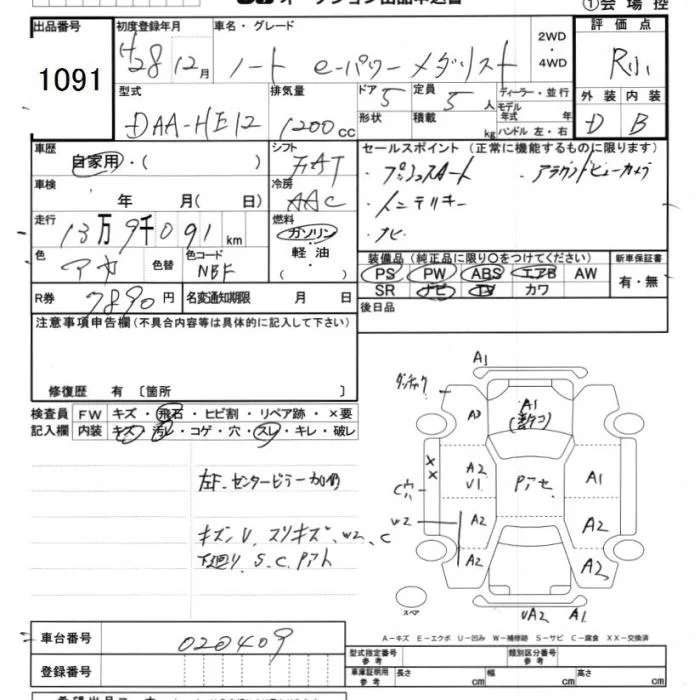 ①会場控
出品番号
1091
初度登録年月
H28 12月
車名・グレード
ノート e-パワー メダリスト
2WD
・
4WD
評価点
R小
外装 内装
D B
型式
DAA-HE12
排気量
1200cc
ドア
5
定員
5人
形状
積載
kg
ディーラー・並行
モデル
年式 年
ハンドル 左・右
車歴
自家用・( )
シフト
FAT
車検
年 月( 日)
冷房
AAC
走行
13万9千091km
燃料
ガソリン
・
軽油
色
アカ
色替
色コード
NBF
R券
7890円
名変通知期限 月 日
セールスポイント(正常に機能するものに限ります)
・プッシュスタート ・アラウンドビューカメラ
・インテリキー
・ナビ
装備品(純正品に限り○をつけてください)
PS PW ABS エアB AW
SR ナビ TV カワ
新車保証書
有・無
後日品
注意事項申告欄(不具合内容等は具体的に記入して下さい)
修復歴 有〔箇所 〕
検査員
記入欄
FW キズ・飛石・ヒビ割・リペア跡・×要
内装 キズ・汚レ・コゲ・穴・スレ・キレ・破レ
左F.センターピラー加修
キズ、U、スリキズ、W2、C
下廻り、S.C.Pアト
A1
A1
A2
U1
Pアセ
A1
××
W2
A2
A2
A2
A2
スペア
UA2 A1
A-キズ E-エクボ U-凹み W-補修跡 S-サビ C-腐食 XX-交換済
車台番号
020409
登録番号
型式指定番号
参考
類別区分番号
参考
車庫証明用
参考
長さ cm
幅 cm
高さ cm